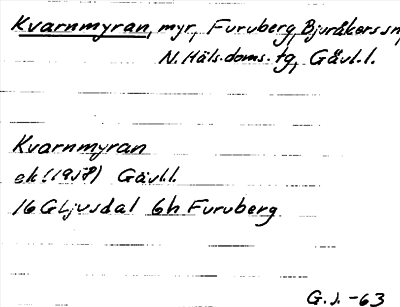 Kvarnmyran, myr, Furuberg, Bjuråkers sn,
N. Häls. doms. tg, Gävl. l.
Kvarnmyran
ek. (1958) Gävl.l.
16 G Ljusdal 6h Furuberg
G.J. -63